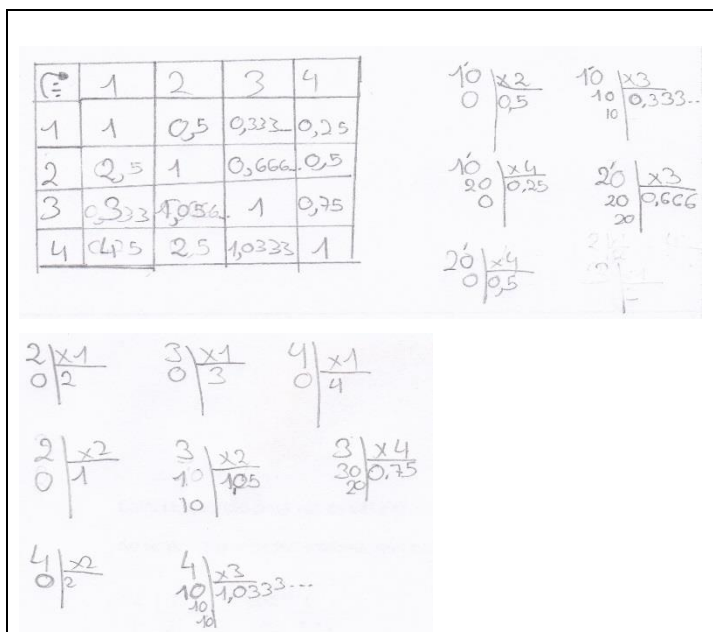 ÷ 1 2 3 4
1 1 0,5 0,333... 0,25
2 2,5 1 0,666... 0,5
3 1 0,75
4 1,0333 1
10 x2
0 0,5
10 x3
10 0,333..
10
10 x4
20 0,25
0
20 x3
20 0,666
20
20 x4
0 0,5
2 x1
0 2
3 x1
0 3
4 x1
0 4
2 x2
0 1
3 x2
10 1,05
10
3 x4
30 0,75
20
4 x2
0 2
4 x3
10 1,0333...
10
10